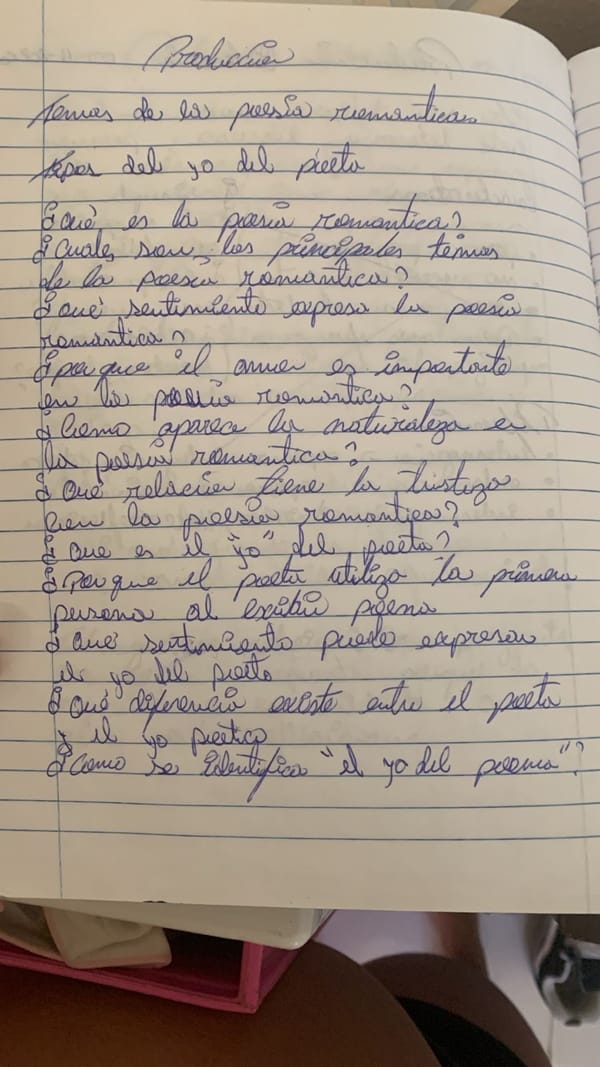 Producción
Temas de la poesía romantica.
tipos del yo del poeta
¿Qué es la poesía romantica?
¿Cuales son los principales temas
de la poesía romantica?
¿qué sentimiento expresa la poesía
romántica?
¿porque el amor es importante
en la poesía romantica?
¿Como aparece la naturaleza en
la poesía romantica?
¿Qué relacion tiene la tristeza
con la poesia romantica?
¿Que es el "yo" del poeta?
¿Por que el poeta utiliza la primera
persona al escribir poema
¿qué sentimiento puede expresar
el yo del poeta
¿Qué diferencia existe entre el poeta
y el yo poetico
¿Como se identifica "el yo del poema"?